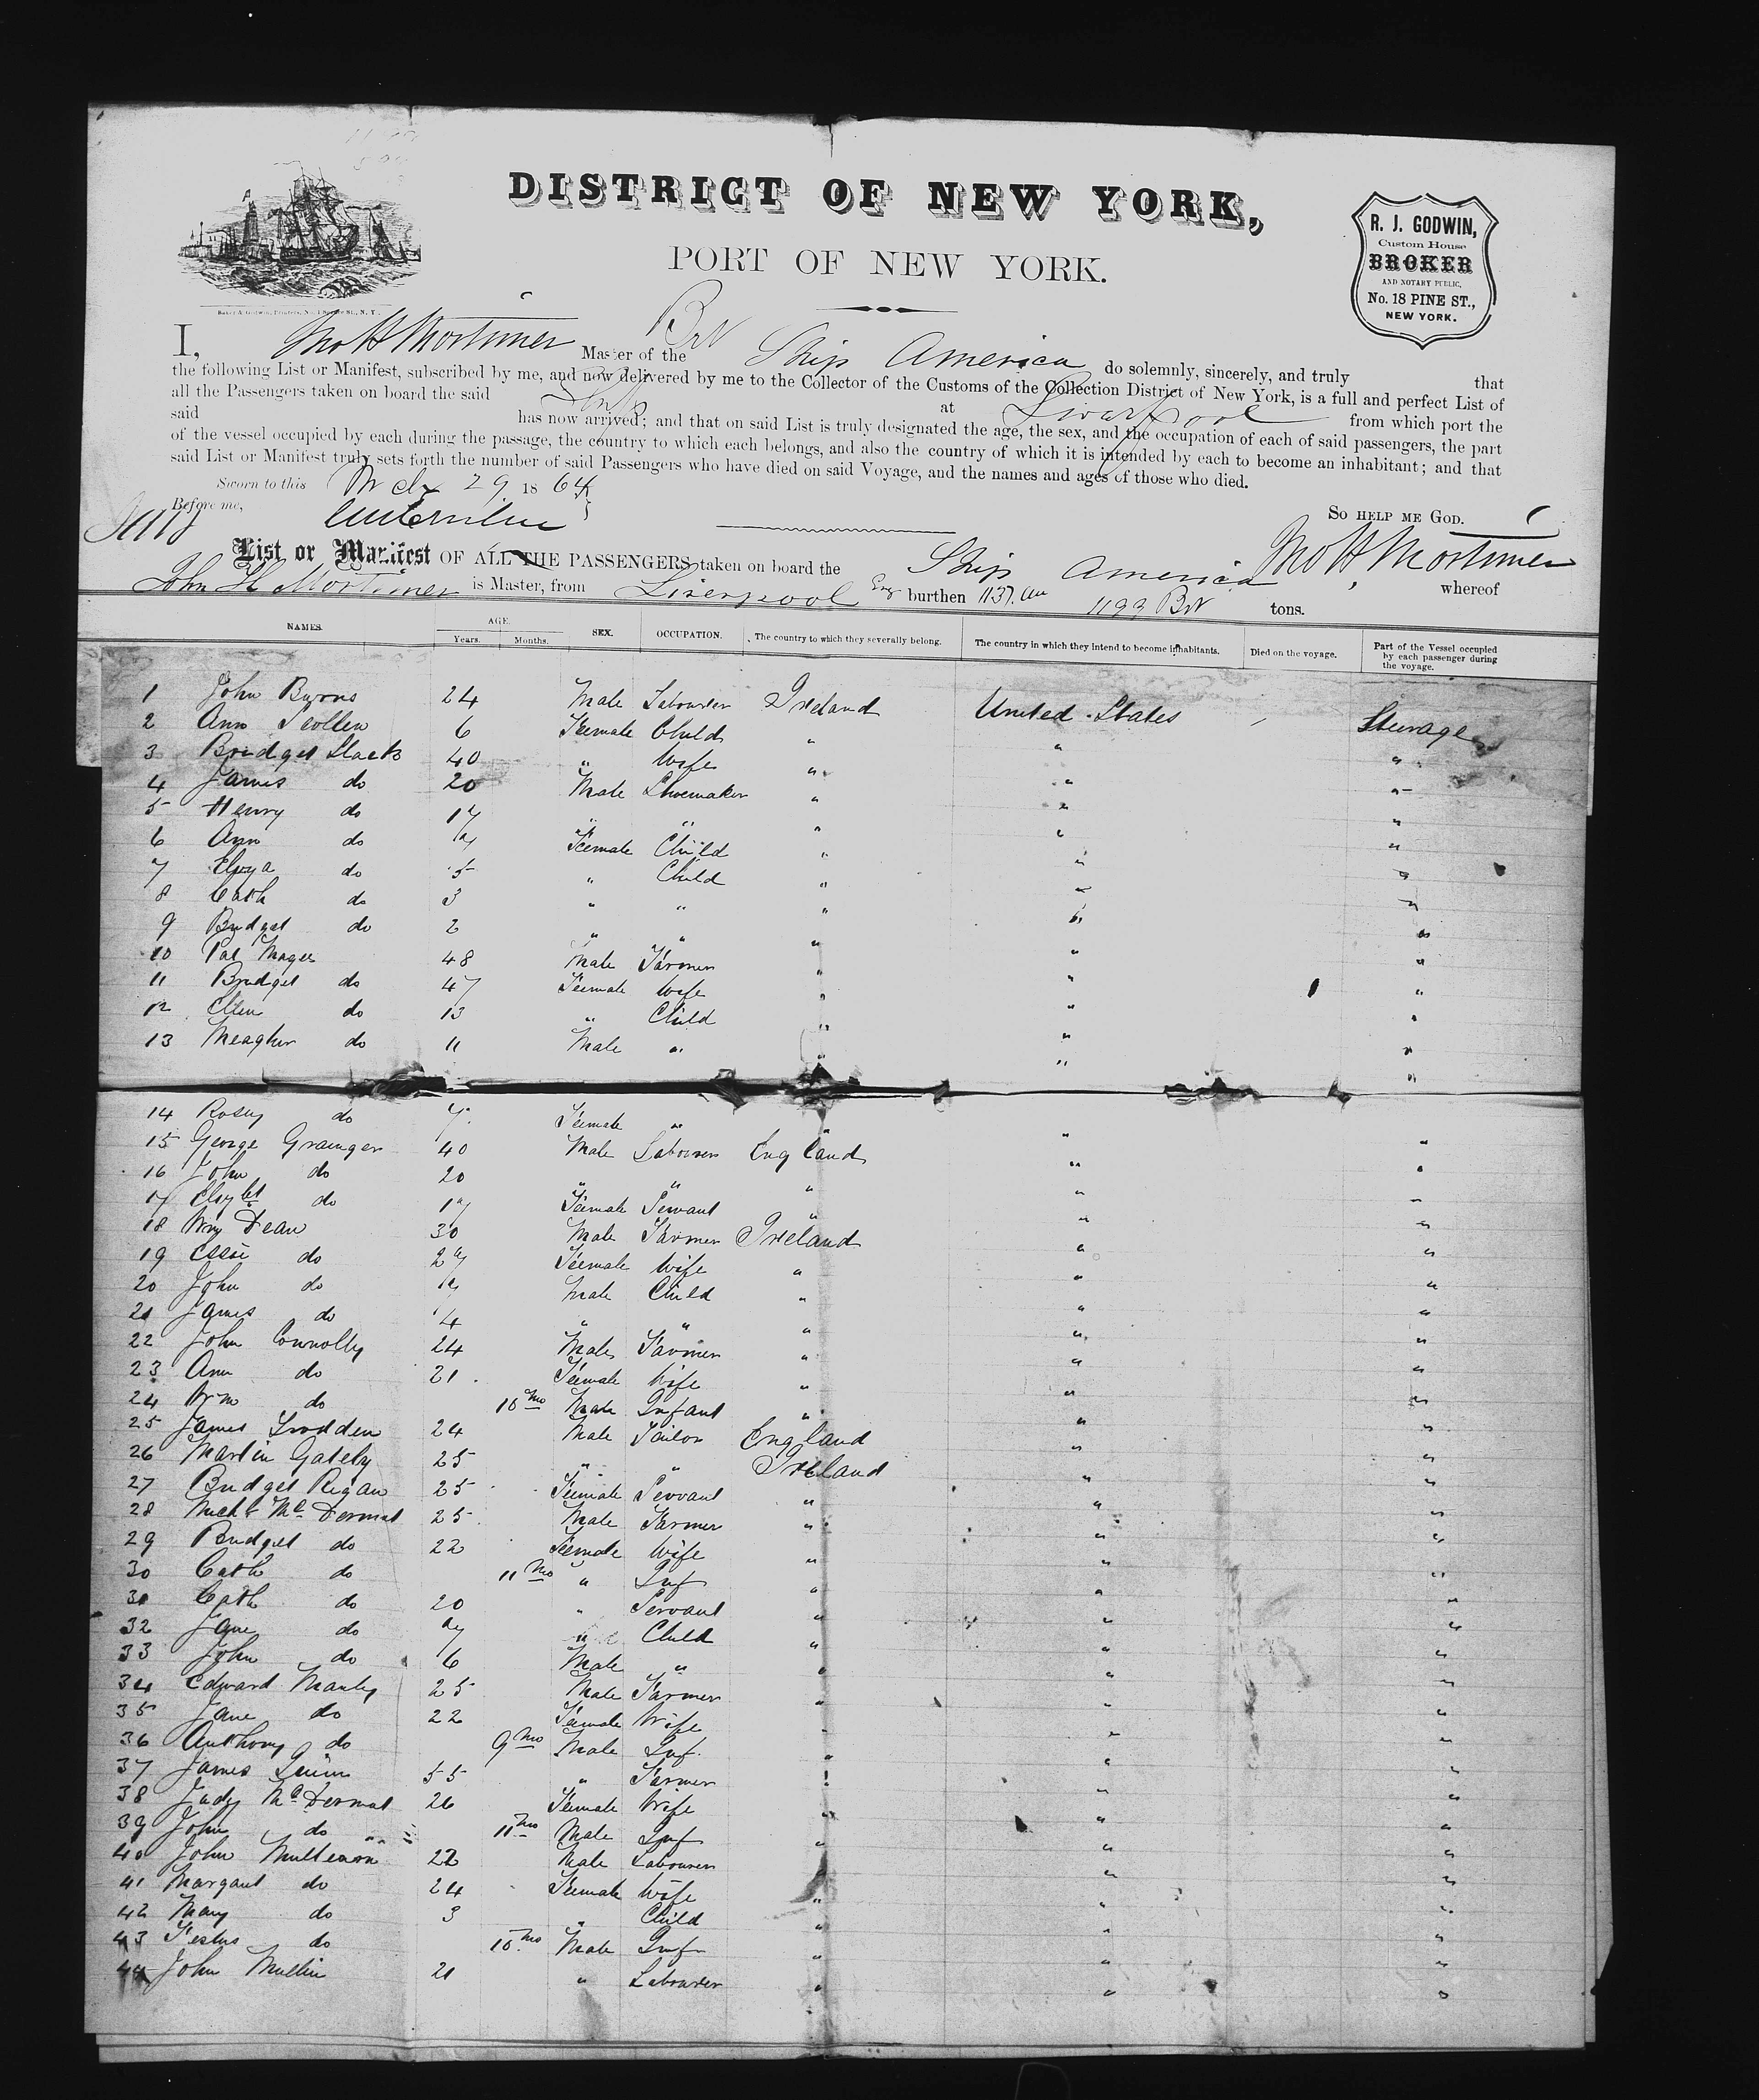 DISTRICT OF NEW YORK,
PORT OF NEW YORK.
R. J. GODWIN,
Custom House
BROKER
AND NOTARY PUBLIC,
No. 18 PINE ST.,
NEW YORK.
I, Jno H Mortimer Master of the Ship America do solemnly, sincerely, and truly that
the following List or Manifest, subscribed by me, and now delivered by me to the Collector of the Customs of the Collection District of New York, is a full and perfect List of
all the Passengers taken on board the said Ship at Liverpool from which port the
said has now arrived; and that on said List is truly designated the age, the sex, and the occupation of each of said passengers, the part
of the vessel occupied by each during the passage, the country to which each belongs, and also the country of which it is intended by each to become an inhabitant; and that
said List or Manifest truly sets forth the number of said Passengers who have died on said Voyage, and the names and ages of those who died.
Sworn to this 29 1864
Before me,
SO HELP ME GOD.
Jno H. Mortimer
List or Manifest OF ALL THE PASSENGERS taken on board the Ship America whereof
John H Mortimer is Master, from Liverpool burthen 1137 1199 tons.
NAMES. AGE. Years. Months. SEX. OCCUPATION. The country to which they severally belong. The country in which they intend to become inhabitants. Died on the voyage. Part of the Vessel occupied by each passenger during the voyage.
1 John Byrns 24 Male Labourer Ireland United States Steerage
2 Ann Scollen 6 Female Child " " "
3 Bridget Slack 40 " Wife " " "
4 James do 20 Male Shoemaker " " "
5 Henry do 17 " " " " "
6 Ann do 7 Female Child " " "
7 Eliza do 5 " Child " " "
8 Cath do 3 " " " " "
9 Bridget do 2 " " " " "
10 Pat Magee 48 Male Farmer " " "
11 Bridget do 47 Female Wife " " "
12 Ellen do 13 " Child " " "
13 Meagher do 11 Male " " " "
14 Rosey do 7 Female " " " "
15 George Grainger 40 Male Labourer England " "
16 John do 20 " " " " "
17 Elizbt do 17 Female Servant " " "
18 Wm Dean 30 Male Farmer Ireland " "
19 Essie do 27 Female Wife " " "
20 John do 7 Male Child " " "
21 James do 4 " " " " "
22 John Connolly 24 Male Farmer " " "
23 Ann do 21 Female Wife " " "
24 Wm do 10 mo Male Infant " " "
25 James 24 Male Tailor England " "
26 Martin Gately 25 " " Ireland " "
27 Bridget Regan 25 Female Servant " " "
28 Michl McDermot 25 Male Farmer " " "
29 Bridget do 22 Female Wife " " "
30 Cath do 11 mo " Inf " " "
31 Cath do 20 " Servant " " "
32 Jane do 7 " Child " " "
33 John do 6 Male " " " "
34 Edward Manley 25 Male Farmer " " "
35 Jane do 22 Female Wife " " "
36 Anthony do 9 mo Male Inf. " " "
37 James Quinn 55 " Farmer " " "
38 Judy McDermot 26 Female Wife " " "
39 John do 11 mo Male Inf " " "
40 John 22 Male Labourer " " "
41 Margaret do 24 Female Wife " " "
42 Mary do 3 " Child " " "
43 Festus do 10 mo Male Inf " " "
44 John Mullin 21 " Labourer " " "